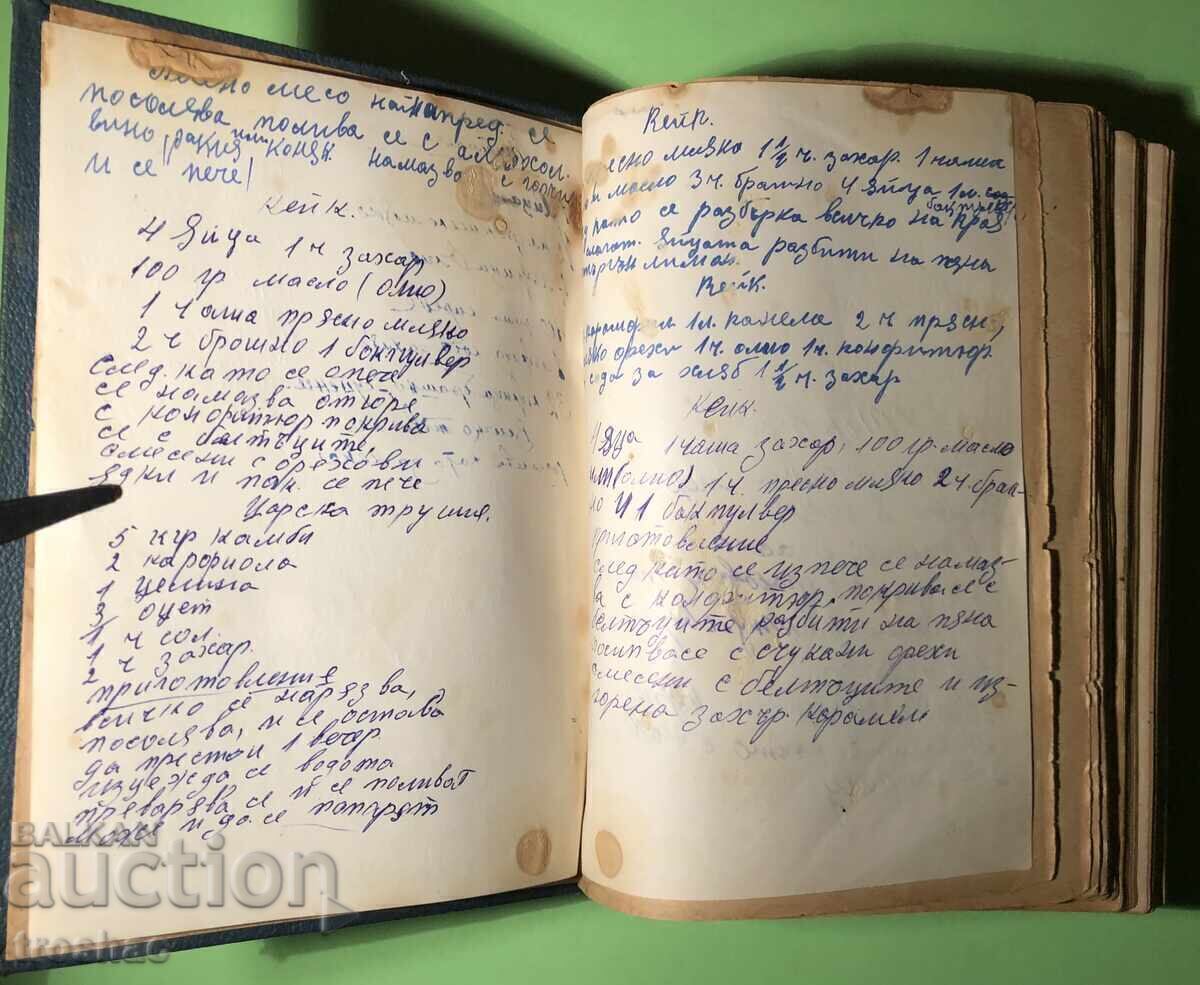 месо найнапред. се
посолява полива се с алкохол.
вино (ракия или коняк намазва с горчи
и се пече!
Кейк.
4 яйца 1 ч захар
100 гр масло (олио)
1 чаша прясно мляко
2 ч брошно 1 бакпулвер
след. като се опече
се намазва отгоре
с конфитюр покрива
се с белтъците,
смесени с орехови
ядки и пак. се пече
Царска трушия.
5 кгр камби
2 карфиола
1 целина
3 оцет
1 ч сол.
2 ч захар.
приготовление
всичко се нарязва,
посолява, и се остава
да престои 1 вечер
изцежда се водата
преварява се и се поливат
може и да се попарят
Кейк.
ясно мляко 1 1/2 ч. захар. 1 чаша
масло 3 ч. брашно 4 яйца 1 л. со
като се разбърка всичко на края
яйцата разбити на пяна
лимон.
Кейк.
1 л. канела 2 ч прясн,
орехи 1 ч. олио 1 ч. конфитюр
сода за хляб 1 1/2 ч. захар
Кейк.
4 яца 1 чаша захар, 100 гр. масло
1 ч. пресно мляко 2 ч. браш-
но Ч 1 бакпулвер
приготовление
след като се изпече се намаз-
ва с конфитюр. покрива се с
белтъците разбити на пяна
посипвасе с счукани орехи
смесени с белтъците и из-
горена захър. карамел
BALKAN
auction
troshac